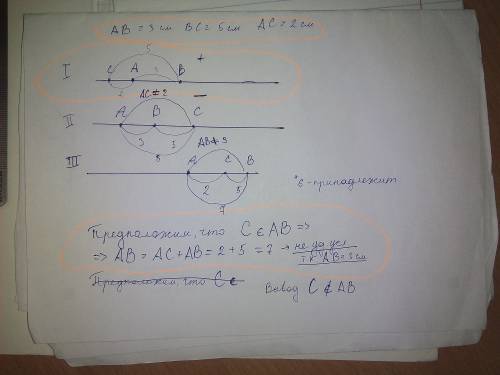 AB = 3 см BC = 5 см AC = 2 см
I
5
C A B
3
2
+
AC ≠ 2
II
A B C
−
3 5
8
AB ≠ 3
III
A C B
2 5
7
*∈ - принадлежит
Предположим, что C ∈ AB =>
=> AB = AC + AB = 2 + 5 = 7 → не да усл
т.к AB = 3 см
Предположим, что C ∈
Вывод C ∉ AB